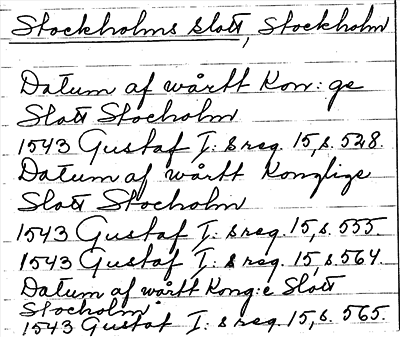 Stockholms slott, Stockholm
Datum af wårtt Kon: ge
Slott Stocholm
1543 Gustaf I: s reg. 15, s. 528.
Datum af wårtt Konglige
Slott Stocholm
1543 Gustaf I: s reg. 15, s. 555.
1543 Gustaf I: s reg. 15, s. 564.
Datum af wårtt Kong:e Slott
Stocholm.
1543 Gustaf I: s reg. 15, s. 565.